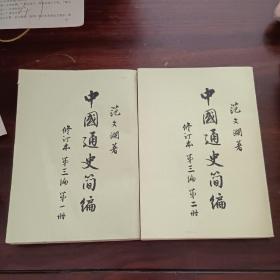 范文澜著
中國通史简编
修订本 第三编 第一册
范文澜著
中國通史简编
修订本 第三编 第二册